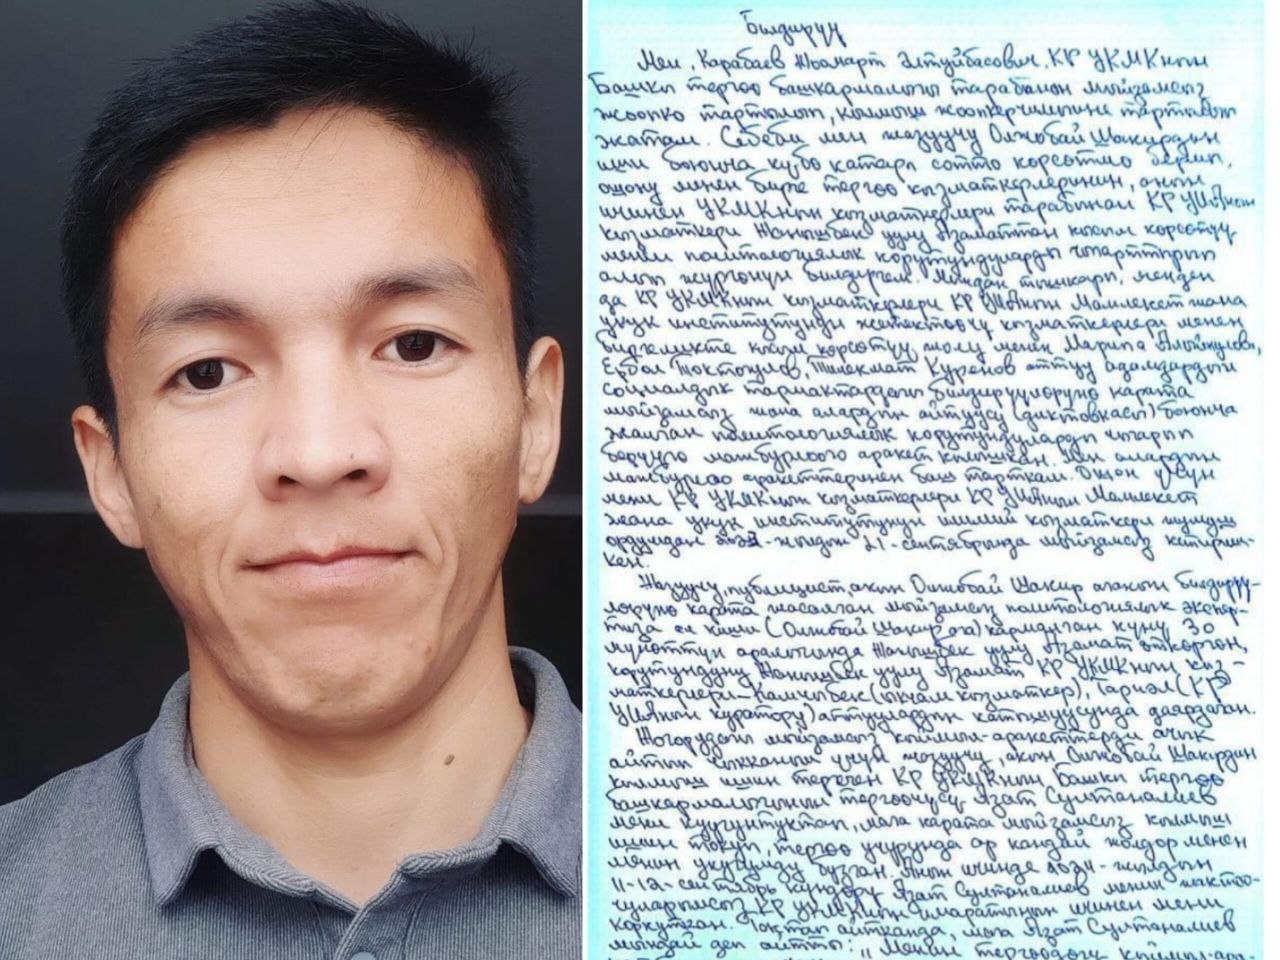 Билдирүү
Мен, Карабаев Жоомарт Элтуйбасович, КР УКМКнын
Башкы тергөө башкармалыгы тарабынан мыйзамсыз
жоопко тартылып, кылмыш жоопкерчилигине тартылып
жатам. Себеби мен жазуучу Олжобай Шакирдин
иши боюнча күбө катары сотто көрсөтмө берип,
ошону менен бирге тергөө кызматкерлеринин, анын
ичинен УКМКнын кызматкерлери тарабынан КР УИАнын
кызматкери Жанышбек уулу Азаматтан кысым көрсөтүү
менен политологиялык корутундуларды чыгарттырып
алып жүргөнүн билдиргем. Мындан тышкары, менден
да КР УКМКнын кызматкерлери КР УИАнын Мамлекет жана
укук институтунун жетектөөчү кызматкерлери менен
биргеликте кысым көрсөтүү жолу менен Марипа
Ербол Токтокулов, Тилекмат Куренов аттуу адамдардын
социалдык тармактардагы билдирүүлөрүнө карата
мыйзамсыз жана алардын айтуусу (диктовкасы) боюнча
жалган политологиялык корутундуларды чыгарып
берүүгө мажбурлоого аракет кылышкан. Мен алардын
мажбурлоо аракеттеринен баш тарткам. Ошон үчүн
мени КР УКМКнын кызматкерлери КР УИАнын Мамлекет
жана укук институтунун илимий кызматкери жумуш
ордунан -жылдын 21-сентябрында мыйзамсыз кетириш-
кен.
Жазуучу, публицист, акын Олжобай Шакир агайын билдирүү-
лөрүнө карата жасалган мыйзамсыз политологиялык экспер-
тиза ал киши (Олжобай Шакир ) кармалган күнү, 30
мүнөттүн аралыгында Жанышбек уулу Азамат өткөргөн,
корутундуну Жанышбек уулу Азамат КР УКМКнын кыз-
маткерлери Камчыбек (ыкчам кызматкер), Тариэл (КР
УИАнын куратору) аттуулардын катышуусунда даярдаган.
Жогорудагы мыйзамсыз кыймыл-аракеттерди ачык
айтып чыкканым үчүн жазуучу, акын Олжобай Шакирдин
кылмыш ишин тергеген КР УКМКнын Башкы тергөө
башкармалыгынын тергөөчүсү Азат Султаналиев
мени куугунтуктап, мага карата мыйзамсыз кылмыш
ишин токуп, тергөө учурунда ар кандай жолдор менен
менин укугумду бузган. Анын ичинде 2024-жылдын
11-12-сентябрь күндөрү Азат Султаналиев менин жактоо-
чуларымсыз КР УКМКнын имаратынын ичинен мени
коркуткан. Тактап айтканда, мага Азат Султаналиев
мындай деп айтты: "Менин тергөөдөгү кыймыл-ара-